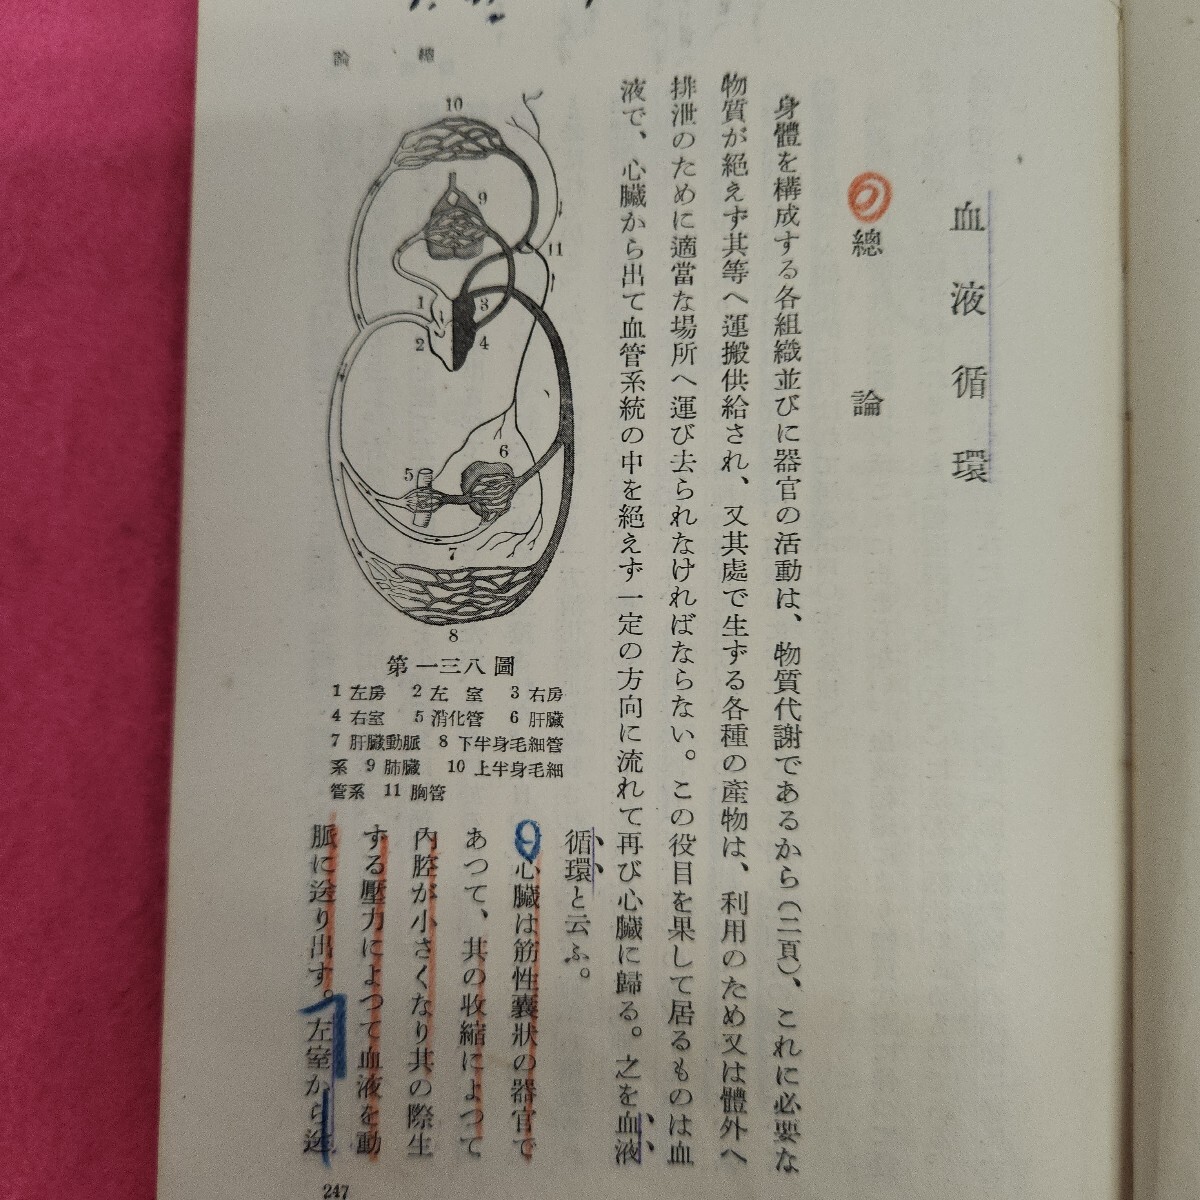 血液循環
總論
身體を構成する各組織並びに器官の活動は、物質代謝であるから(二頁)、これに必要な
物質が絕えず其等へ運搬供給され、又其處で生ずる各種の產物は、利用のため又は體外へ
排泄のために適當な場所へ運び去られなければならない。この役目を果して居るものは血
液で、心臟から出て血管系統の中を絕えず一定の方向に流れて再び心臟に歸る。之を血液
循環と云ふ。
心臟は筋性囊狀の器官で
あつて、其の收縮によつて
內腔が小さくなり其の際生
ずる壓力によつて血液を動
脈に送り出す。左室から送
總論
10
9
11
1
3
2
4
5
6
7
8
第一三八圖
1 左房 2 左室 3 右房
4 右室 5 消化管 6 肝臟
7 肝臟動脈 8 下半身毛細管
系 9 肺臟 10 上半身毛細
管系 11 胸管
247